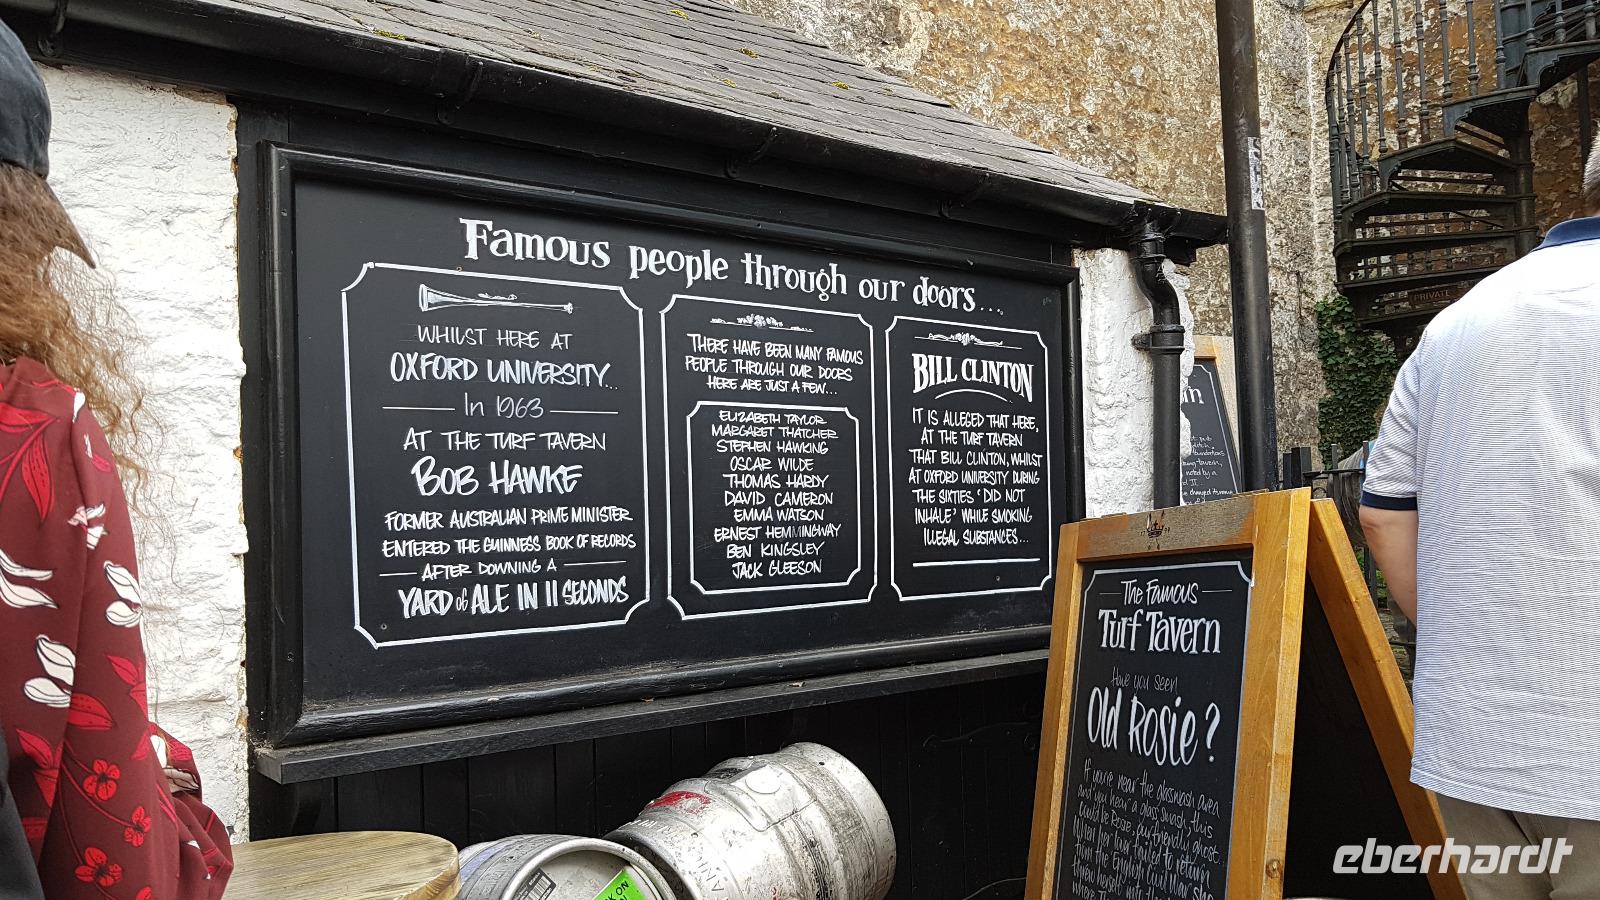 Famous people through our doors...
WHILST HERE AT
OXFORD UNIVERSITY...
In 1963
AT THE TURF TAVERN
BOB HAWKE
FORMER AUSTRALIAN PRIME MINISTER
ENTERED THE GUINNESS BOOK OF RECORDS
AFTER DOWNING A
YARD of ALE IN 11 SECONDS
THERE HAVE BEEN MANY FAMOUS
PEOPLE THROUGH OUR DOORS
HERE ARE JUST A FEW...
ELIZABETH TAYLOR
MARGARET THATCHER
STEPHEN HAWKING
OSCAR WILDE
THOMAS HARDY
DAVID CAMERON
EMMA WATSON
ERNEST HEMMINGWAY
BEN KINGSLEY
JACK GLEESON
BILL CLINTON
IT IS ALLEGED THAT HERE,
AT THE TURF TAVERN
THAT BILL CLINTON, WHILST
AT OXFORD UNIVERSITY DURING
THE SIXTIES 'DID NOT
INHALE' WHILE SMOKING
ILLEGAL SUBSTANCES...
PRIVATE
The Famous
Turf Tavern
Have you seen
Old Rosie?
If you're near the glasswash area
and you hear a glass smash, this
could be Rosie, our friendly ghost.
When her lover failed to return
from the English Civil War she
threw herself into the
eberhardt